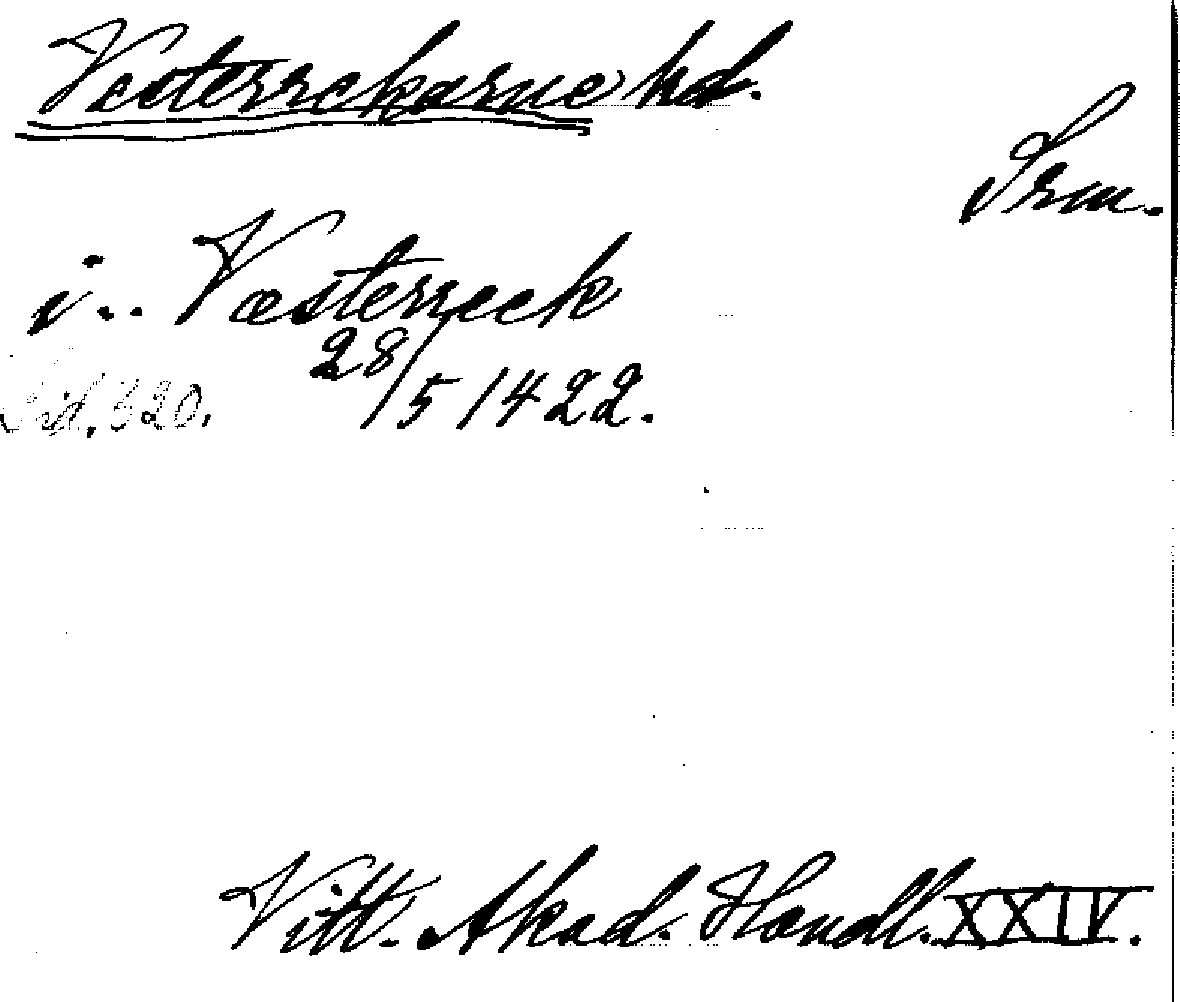 Vesterrekarne hd.
Srm.
i.. Væsterreck
28/5 1422.
Sid. 320.
Vitt. Akad. Handl. XXIV.